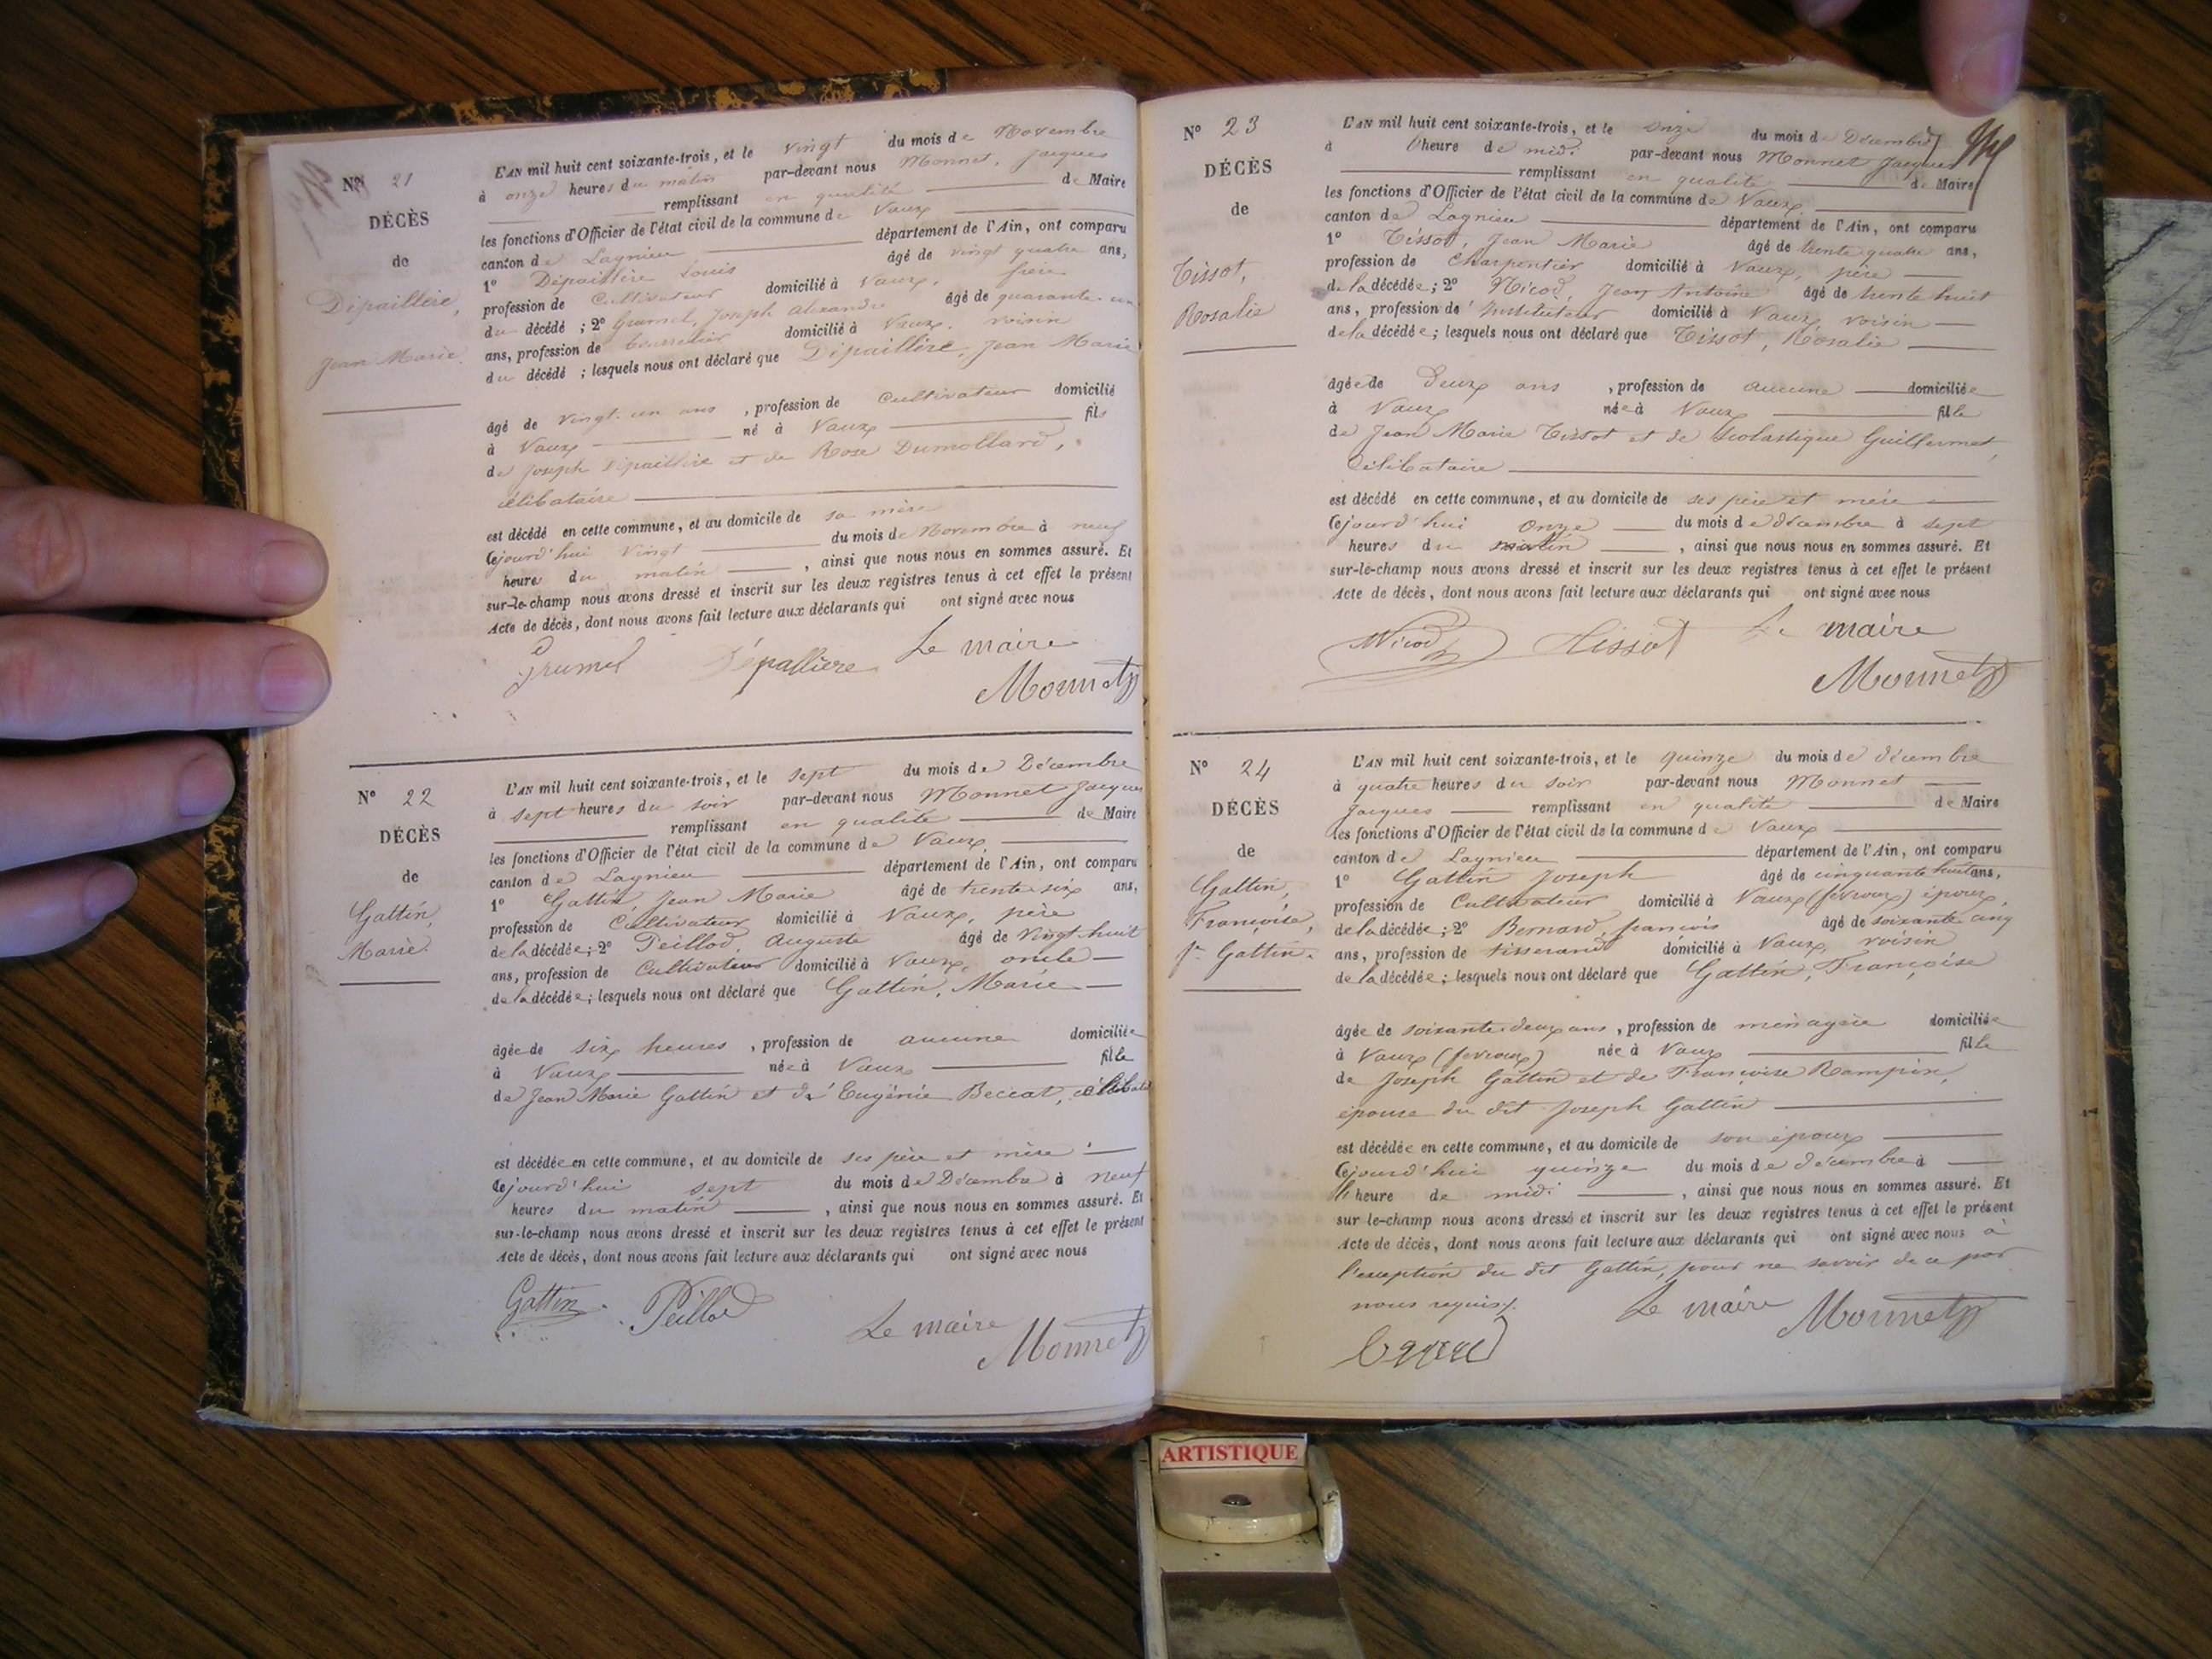 N° 21
DÉCÈS
de
Dépaillère,
Jean Marie.
L'AN mil huit cent soixante-trois, et le vingt du mois de Novembre
à onze heures du matin par-devant nous Monnet, Jacques
remplissant en qualité de Maire
les fonctions d'Officier de l'état civil de la commune de Vaux
canton de Lagnieu département de l'Ain, ont comparu
1° Dépaillère Louis âgé de vingt quatre ans,
profession de Cultivateur domicilié à Vaux, frère
du décédé ; 2° Grumel, Joseph Alexandre âgé de quarante-un
ans, profession de domicilié à Vaux, voisin
du décédé ; lesquels nous ont déclaré que Dépaillère, Jean Marie
âgé de vingt-un ans , profession de Cultivateur domicilié
à Vaux né à Vaux fils
de Joseph Dépaillère et de Rose Dumollard,
célibataire
est décédé en cette commune, et au domicile de sa mère
Cejourd'hui vingt du mois de Novembre à neuf
heures du matin , ainsi que nous nous en sommes assuré. Et
sur-le-champ nous avons dressé et inscrit sur les deux registres tenus à cet effet le présent
Acte de décès, dont nous avons fait lecture aux déclarants qui ont signé avec nous
Grumel Dépallière Le maire
Monnet
N° 22
DÉCÈS
de
Gattin,
Marie.
L'AN mil huit cent soixante-trois, et le sept du mois de Décembre
à sept heures du soir par-devant nous Monnet Jacques
remplissant en qualité de Maire
les fonctions d'Officier de l'état civil de la commune de Vaux
canton de Lagnieu département de l'Ain, ont comparu
1° Gattin, Jean Marie âgé de trente-six ans,
profession de Cultivateur domicilié à Vaux, père
de la décédée ; 2° Peillod, Auguste âgé de vingt-huit
ans, profession de Cultivateur domicilié à Vaux, oncle
de la décédée ; lesquels nous ont déclaré que Gattin, Marie
âgée de six heures , profession de aucune domiciliée
à Vaux née à Vaux fille
de Jean Marie Gattin et de Eugénie Beccat, célibat
est décédée en cette commune, et au domicile de ses père et mère
Cejourd'hui sept du mois de Décembre à neuf
heures du matin , ainsi que nous nous en sommes assuré. Et
sur-le-champ nous avons dressé et inscrit sur les deux registres tenus à cet effet le présent
Acte de décès, dont nous avons fait lecture aux déclarants qui ont signé avec nous
Gattin Peillod
Le maire
Monnet
N° 23
DÉCÈS
de
Tissot,
Rosalie
L'AN mil huit cent soixante-trois, et le onze du mois de Décembre
à l'heure de midi par-devant nous Monnet Jacques
remplissant en qualité de Maire
les fonctions d'Officier de l'état civil de la commune de Vaux
canton de Lagnieu département de l'Ain, ont comparu
1° Tissot, Jean Marie âgé de trente quatre ans,
profession de Charpentier domicilié à Vaux, père
de la décédée ; 2° Nicod, Jean Antoine âgé de trente huit
ans, profession d'Instituteur domicilié à Vaux voisin
de la décédée ; lesquels nous ont déclaré que Tissot, Rosalie
âgée de deux ans , profession de aucune domiciliée
à Vaux née à Vaux fille
de Jean Marie Tissot et de Scolastique Guillermet,
Célibataire
est décédé en cette commune, et au domicile de ses père et mère
Cejourd'hui onze du mois de décembre à sept
heures du matin , ainsi que nous nous en sommes assuré. Et
sur-le-champ nous avons dressé et inscrit sur les deux registres tenus à cet effet le présent
Acte de décès, dont nous avons fait lecture aux déclarants qui ont signé avec nous
Nicod Tissot Le maire
Monnet
N° 24
DÉCÈS
de
Gattin,
Françoise,
fe Gattin.
L'AN mil huit cent soixante-trois, et le quinze du mois de décembre
à quatre heures du soir par-devant nous Monnet
Jacques remplissant en qualité de Maire
les fonctions d'Officier de l'état civil de la commune de Vaux
canton de Lagnieu département de l'Ain, ont comparu
1° Gattin Joseph âgé de cinquante huit ans,
profession de Cultivateur domicilié à Vaux (févroux) époux,
de la décédée ; 2° Bernard, françois âgé de soixante cinq
ans, profession de tisserand domicilié à Vaux, voisin
de la décédée ; lesquels nous ont déclaré que Gattin, Françoise
âgée de soixante-deux ans , profession de ménagère domiciliée
à Vaux (févroux) née à Vaux fille
de Joseph Gattin et de Françoise Rampin,
épouse du dit Joseph Gattin
est décédée en cette commune, et au domicile de son époux
Cejourd'hui quinze du mois de décembre à
l'heure de midi , ainsi que nous nous en sommes assuré. Et
sur-le-champ nous avons dressé et inscrit sur les deux registres tenus à cet effet le présent
Acte de décès, dont nous avons fait lecture aux déclarants qui ont signé avec nous à
l'exception du dit Gattin, pour ne savoir de ce par
nous requis.
Le maire Monnet
ARTISTIQUE